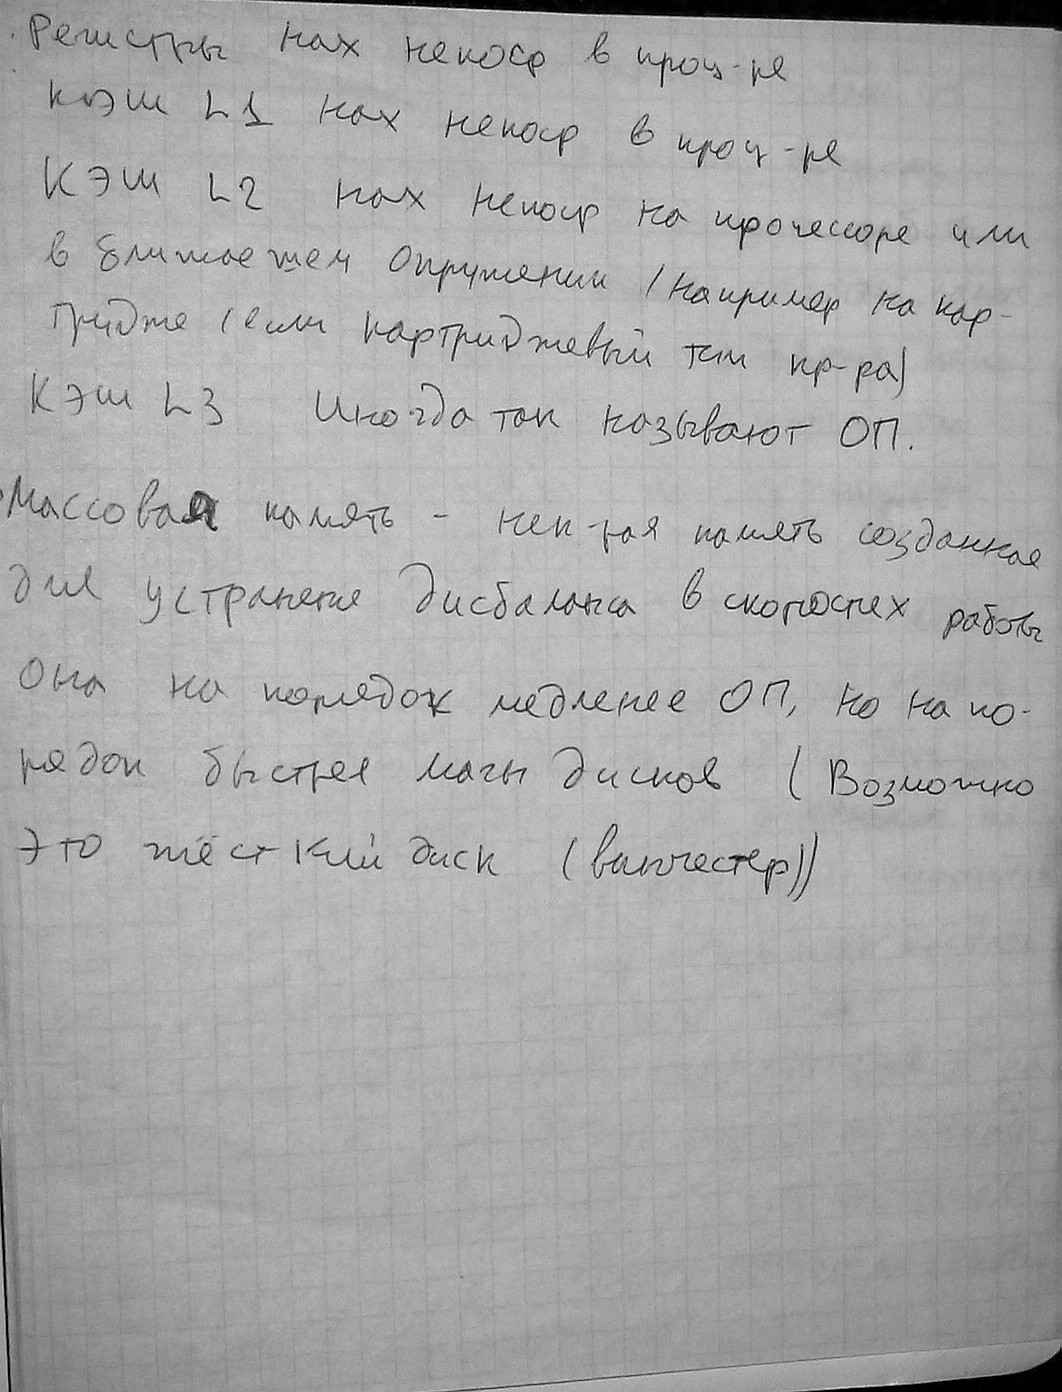 Регистры нах непоср в проц-ре
КЭШ L1 нах непоср в проц-ре
КЭШ L2 нах непоср на процессоре или
в ближаешем окружении (например на кар-
тридже (если картриджевый тип пр-ра)
КЭШ L3 Иногда так называют ОП.
Массовая память - нек-рая память созданная
для устранение дисбаланса в скоростях работы
Она на порядок медленее ОП, но на по-
рядок быстрее магн дисков (Возможно
это жёсткий диск (винчестер))